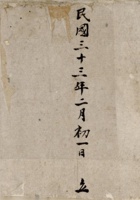 民國三十三年二月初一日 立